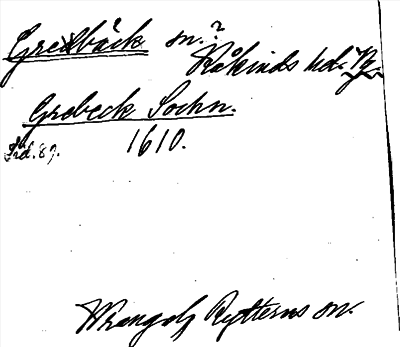 Grebäck sn.?
Kåkinds hd. Vg.
Grebeck Sochn.
1610.
Wrangels Rytterns sn.